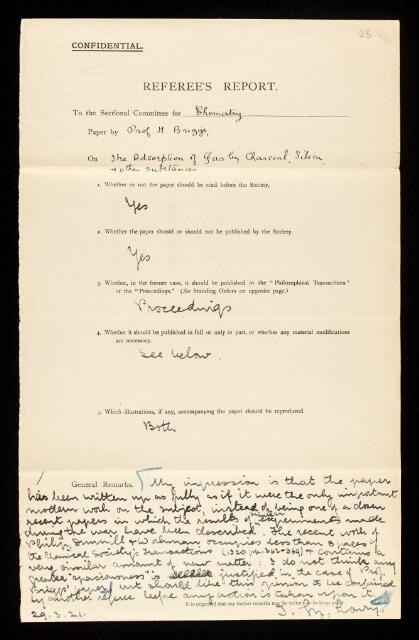 23
CONFIDENTIAL.
REFEREE'S REPORT.
To the Sectional Committee for Chemistry
Paper by Prof H Briggs
On The Adsorption of Gas by Charcoal, Silica
& other substances
1. Whether or not the paper should be read before the Society.
Yes
2. Whether the paper should or should not be published by the Society.
Yes
3. Whether, in the former case, it should be published in the "Philosophical Transactions"
or the "Proceedings." (See Standing Orders on opposite page.)
Proceedings
4. Whether it should be published in full or only in part, or whether any material modifications
are necessary.
See below.
5. Which illustrations, if any, accompanying the paper should be reproduced.
Both
General Remarks. My impression is that the paper
has been written up as fully as if it were the only important
modern work on the subject, instead of being one of a dozen
recent papers in which the results of similar experiments made
during the war have been described. The recent work of
Philip, Dunnill & Workman occupies less than 8 pages of
the Chemical Society's Transactions (1920 pp. 362-369) & contains a
very similar amount of new matter: I do not think any
greater "spaciousness" is justified in the case of Prof.
Briggs' paper, but should like this opinion to be confirmed
by another referee before any action is taken upon it.
It is requested that any further remarks may be written on foreign paper.
29.3.21. T. M. Lowry.